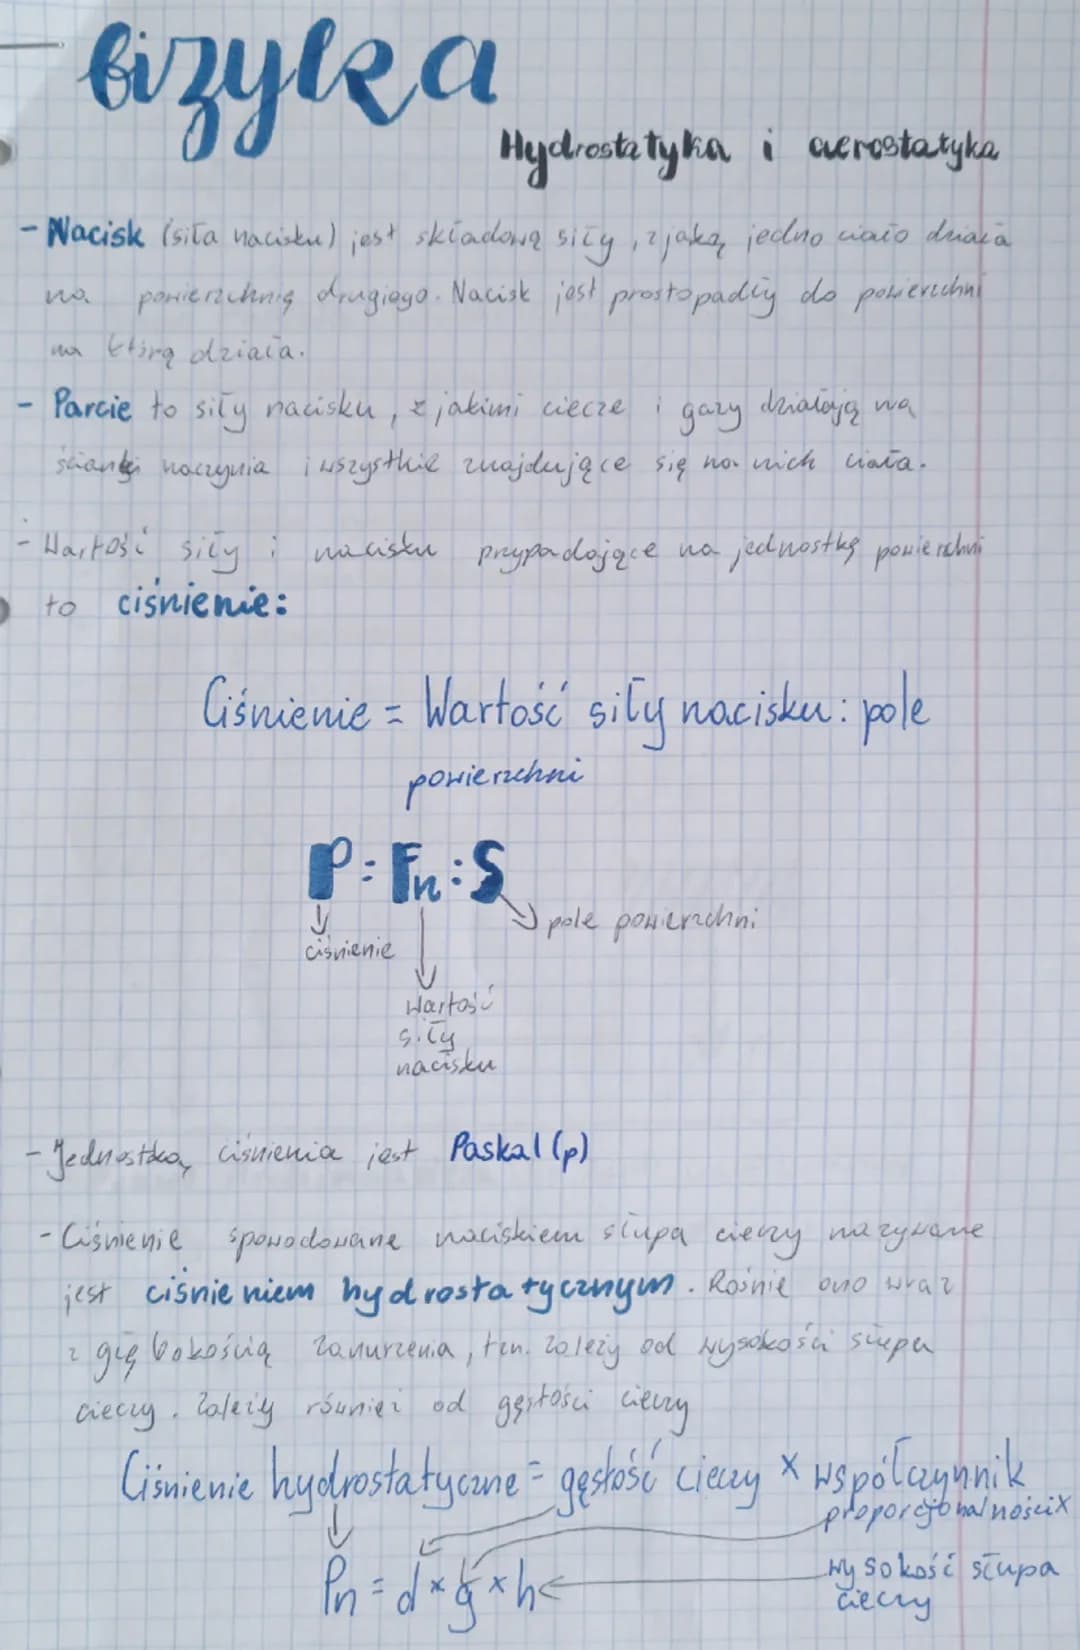 fizyka
Hydrostatyka i aerostatyka
- Nacisk (siła nacisku) jest składową siły, z jaką jedno ciało działa
na powierzchnię drugiego. Nacisk jest prostopadły do powierzchni
na którą działa.
- Parcie to siły nacisku, z jakimi ciecze i gazy działają na
ścianki naczynia i wszystkie znajdujące się na nich ciała.
- Wartość siły i nacisku przypadające na jednostkę powierzchni
to ciśnienie:
Ciśnienie = Wartość siły nacisku : pole
powierzchni
P = Fn : S
pole powierzchni
ciśnienie
Wartość
siły
nacisku
- Jednostką ciśnienia jest Paskal (p)
- Ciśnienie spowodowane naciskiem słupa cieczy nazywane
jest ciśnieniem hydrostatycznym. Rośnie ono wraz
z głębokością zanurzenia, tzn. zależy od wysokości słupa
cieczy. Zależy również od gęstości cieczy
Ciśnienie hydrostatyczne = gęstość cieczy x współczynnik
proporcjonalności x
wysokość słupa
cieczy
Pn = d x g x h